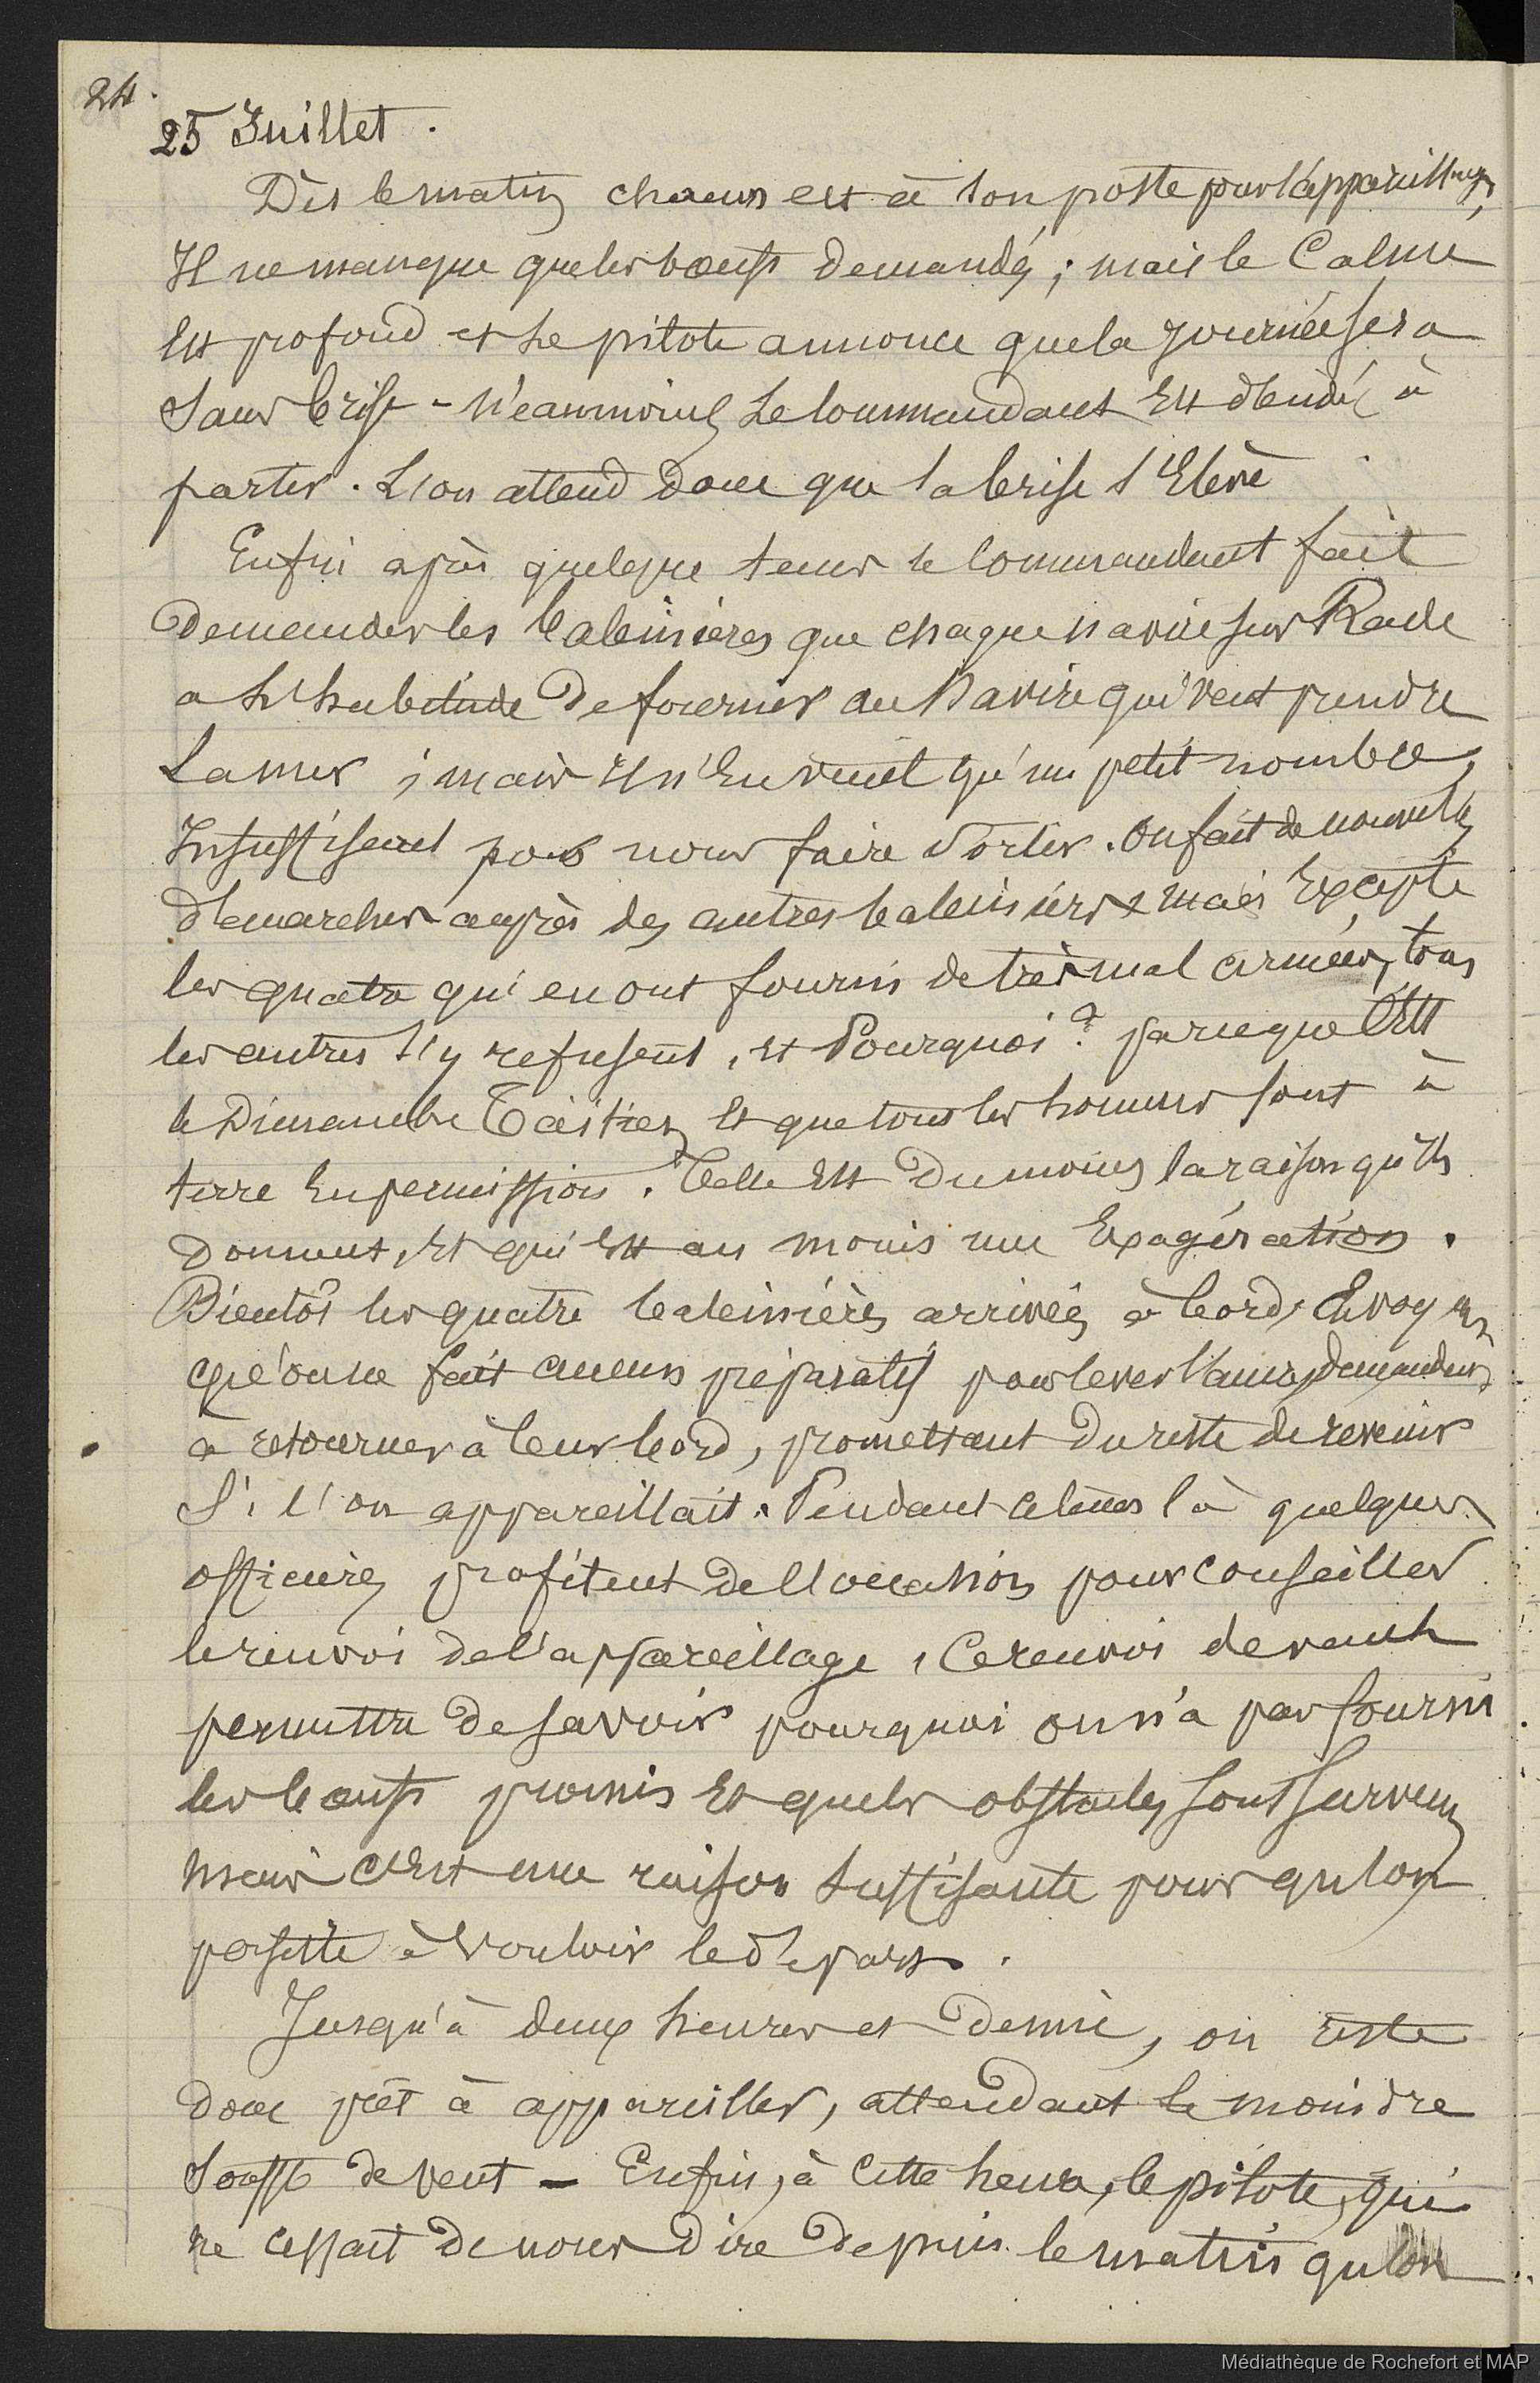 24.
25 Juillet.
Dès le matin chacun est à son poste pour l'appareillage,
Il ne manque que les bœufs demandés ; mais le Calme
Est profond et Le pilote annonce que la journée sera
Sans brise - N'eanmoins Le Commandant Est décidé à
partir. L'on attend donc que la brise s'Elève
Enfin après quelque tems le Commandant fait
Demander les baleinières que chaque navire sur Rade
a L'habitude De fournir au Navire qui veut prendre
La mer ; mais Il n'En vient qu'un petit nombre,
Insuffisant pour nous faire Sortir. On fait de nouvelles
démarches auprès des autres baleiniers mais Excepté
les quatre qui en ont fourni de très mal armées, tous
les autres s'y refusent, et Pourquoi ? parceque C'Est
le Dimanche Taïtien Et que tous les hommes sont à
terre En permission. Telle Est Du moins la raison qu'ils
Donnent, Et qui Est au moins une Exagération.
Bientôt les quatre baleinières arrivées à bord, Envoyant
qu'on ne fait aucun préparatif pour lever l'ancre, demandent
à retourner à leur bord, promettant Du reste de revenir
Si l'on appareillait. Pendant ce tems là quelques
officiers profitent De l'occasion pour conseiller
le renvoi De l'appareillage, Ce renvoi devant
permettre De savoir pourquoi on n'a pas fourni
les bœufs promis Et quels obstacles sont survenus
mais C'Est une raison suffisante pour qu'lon
persiste à Vouloir le départ.
Jusqu'à deux heures et Demie, on reste
donc prêt à appareiller, attendant le moindre
Souffle de vent - Enfin, à Cette heure, le pilote, qui
ne Cessait De nous Dire Depuis le matin qu'lon
Médiathèque de Rochefort et MAP